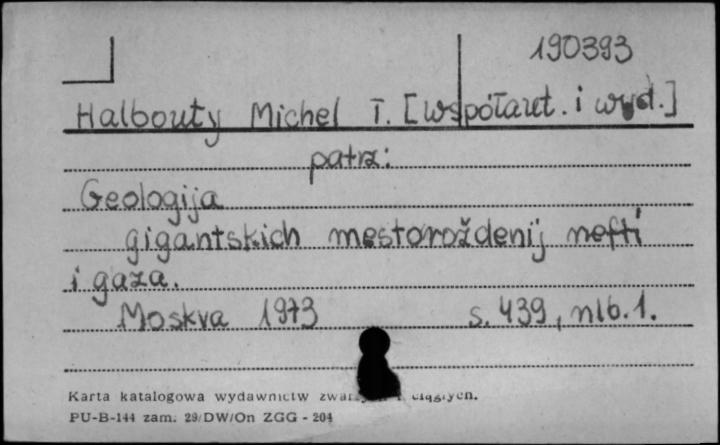 190393
Halbouty Michel T. [współaut. i wyd.]
patrz:
Geologija
gigantskich mestoroždenij nefti
i gaza.
Moskva 1973 s. 439, nlb. 1.
Karta katalogowa wydawnictw ciągłych.
PU-B-144 zam. 29/DW/On ZGG - 204